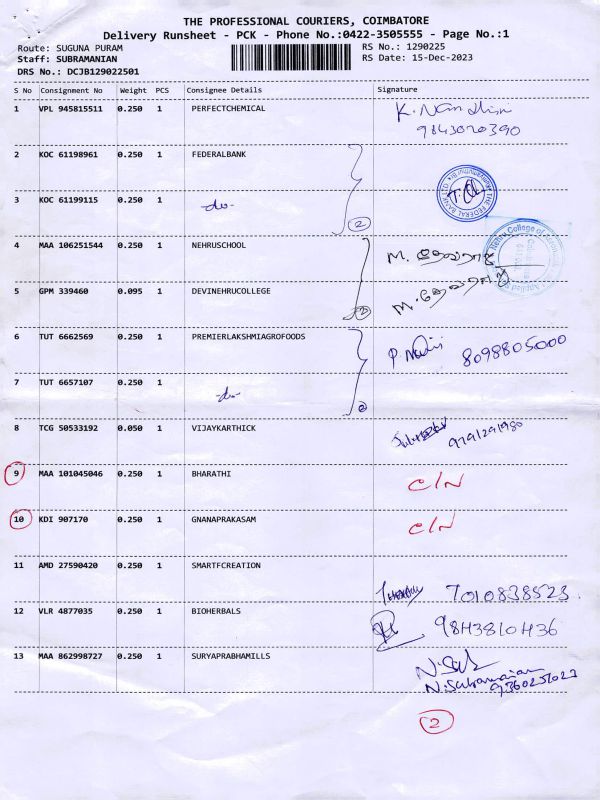 THE PROFESSIONAL COURIERS, COIMBATORE
Delivery Runsheet - PCK - Phone No.:0422-3505555 - Page No.:1
Route: SUGUNA PURAM
Staff: SUBRAMANIAN
DRS No.: DCJB129022501
RS No.: 1290225
RS Date: 15-Dec-2023
S No Consignment No Weight PCS Consignee Details Signature
1 VPL 945815511 0.250 1 PERFECTCHEMICAL
9843020390
2 KOC 61198961 0.250 1 FEDERALBANK
3 KOC 61199115 0.250 1 -do-
2
THE FEDERAL BANK LTD
4 MAA 106251544 0.250 1 NEHRUSCHOOL
5 GPM 339460 0.095 1 DEVINEHRUCOLLEGE
2
6 TUT 6662569 0.250 1 PREMIERLAKSHMIAGROFOODS 8098805000
7 TUT 6657107 0.250 1 -do-
2
8 TCG 50533192 0.050 1 VIJAYKARTHICK 9791291980
9 MAA 101045046 0.250 1 BHARATHI C/N
10 KDI 907170 0.250 1 GNANAPRAKASAM C/N
11 AMD 27590420 0.250 1 SMARTFCREATION
7010838523
12 VLR 4877035 0.250 1 BIOHERBALS 9843810436
13 MAA 862998727 0.250 1 SURYAPRABHAMILLS
N.Subramanian
9360251023
2